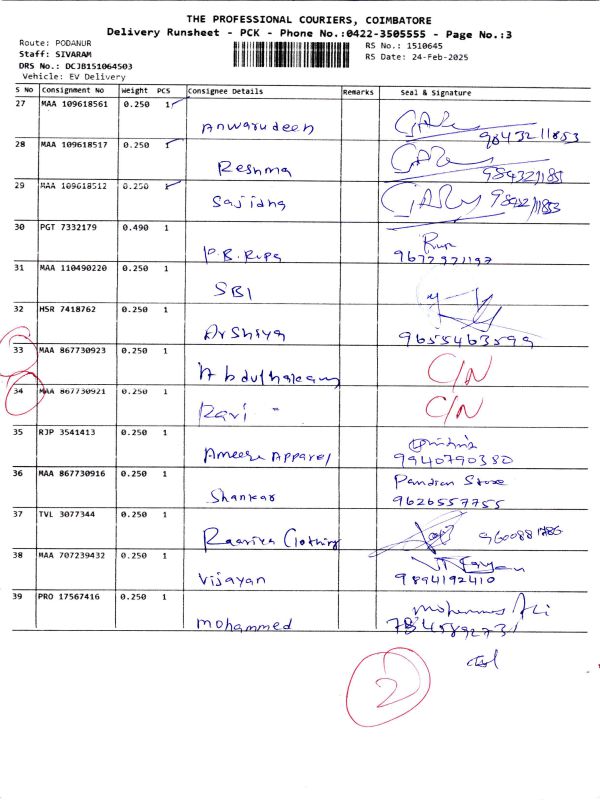 THE PROFESSIONAL COURIERS, COIMBATORE
Delivery Runsheet - PCK - Phone No.:0422-3505555 - Page No.:3
Route: PODANUR
Staff: SIVARAM
DRS No.: DCJB151064503
Vehicle: EV Delivery
RS No.: 1510645
RS Date: 24-Feb-2025
S No Consignment No Weight PCS Consignee Details Remarks Seal & Signature
27 MAA 109618561 0.250 1
Anwarudeen 9843211853
28 MAA 109618517 0.250 1
Reshma
29 MAA 109618512 0.250 1
Sajidha
30 PGT 7332179 0.490 1
P.B. Rupa
31 MAA 110490220 0.250 1
SBI
32 HSR 7418762 0.250 1
Arshiya 9655463599
33 MAA 867730923 0.250 1
Abdulhakeem C/N
34 MAA 867730921 0.250 1
Ravi C/N
35 RJP 3541413 0.250 1
Ameera Apparel 9940790380
36 MAA 867730916 0.250 1 Pandian Store
Shankar 9626557755
37 TVL 3077344 0.250 1
Raariya Clothing
38 MAA 707239432 0.250 1
Vijayan 9894192410
39 PRO 17567416 0.250 1 Mohammed Ali
mohammed
2